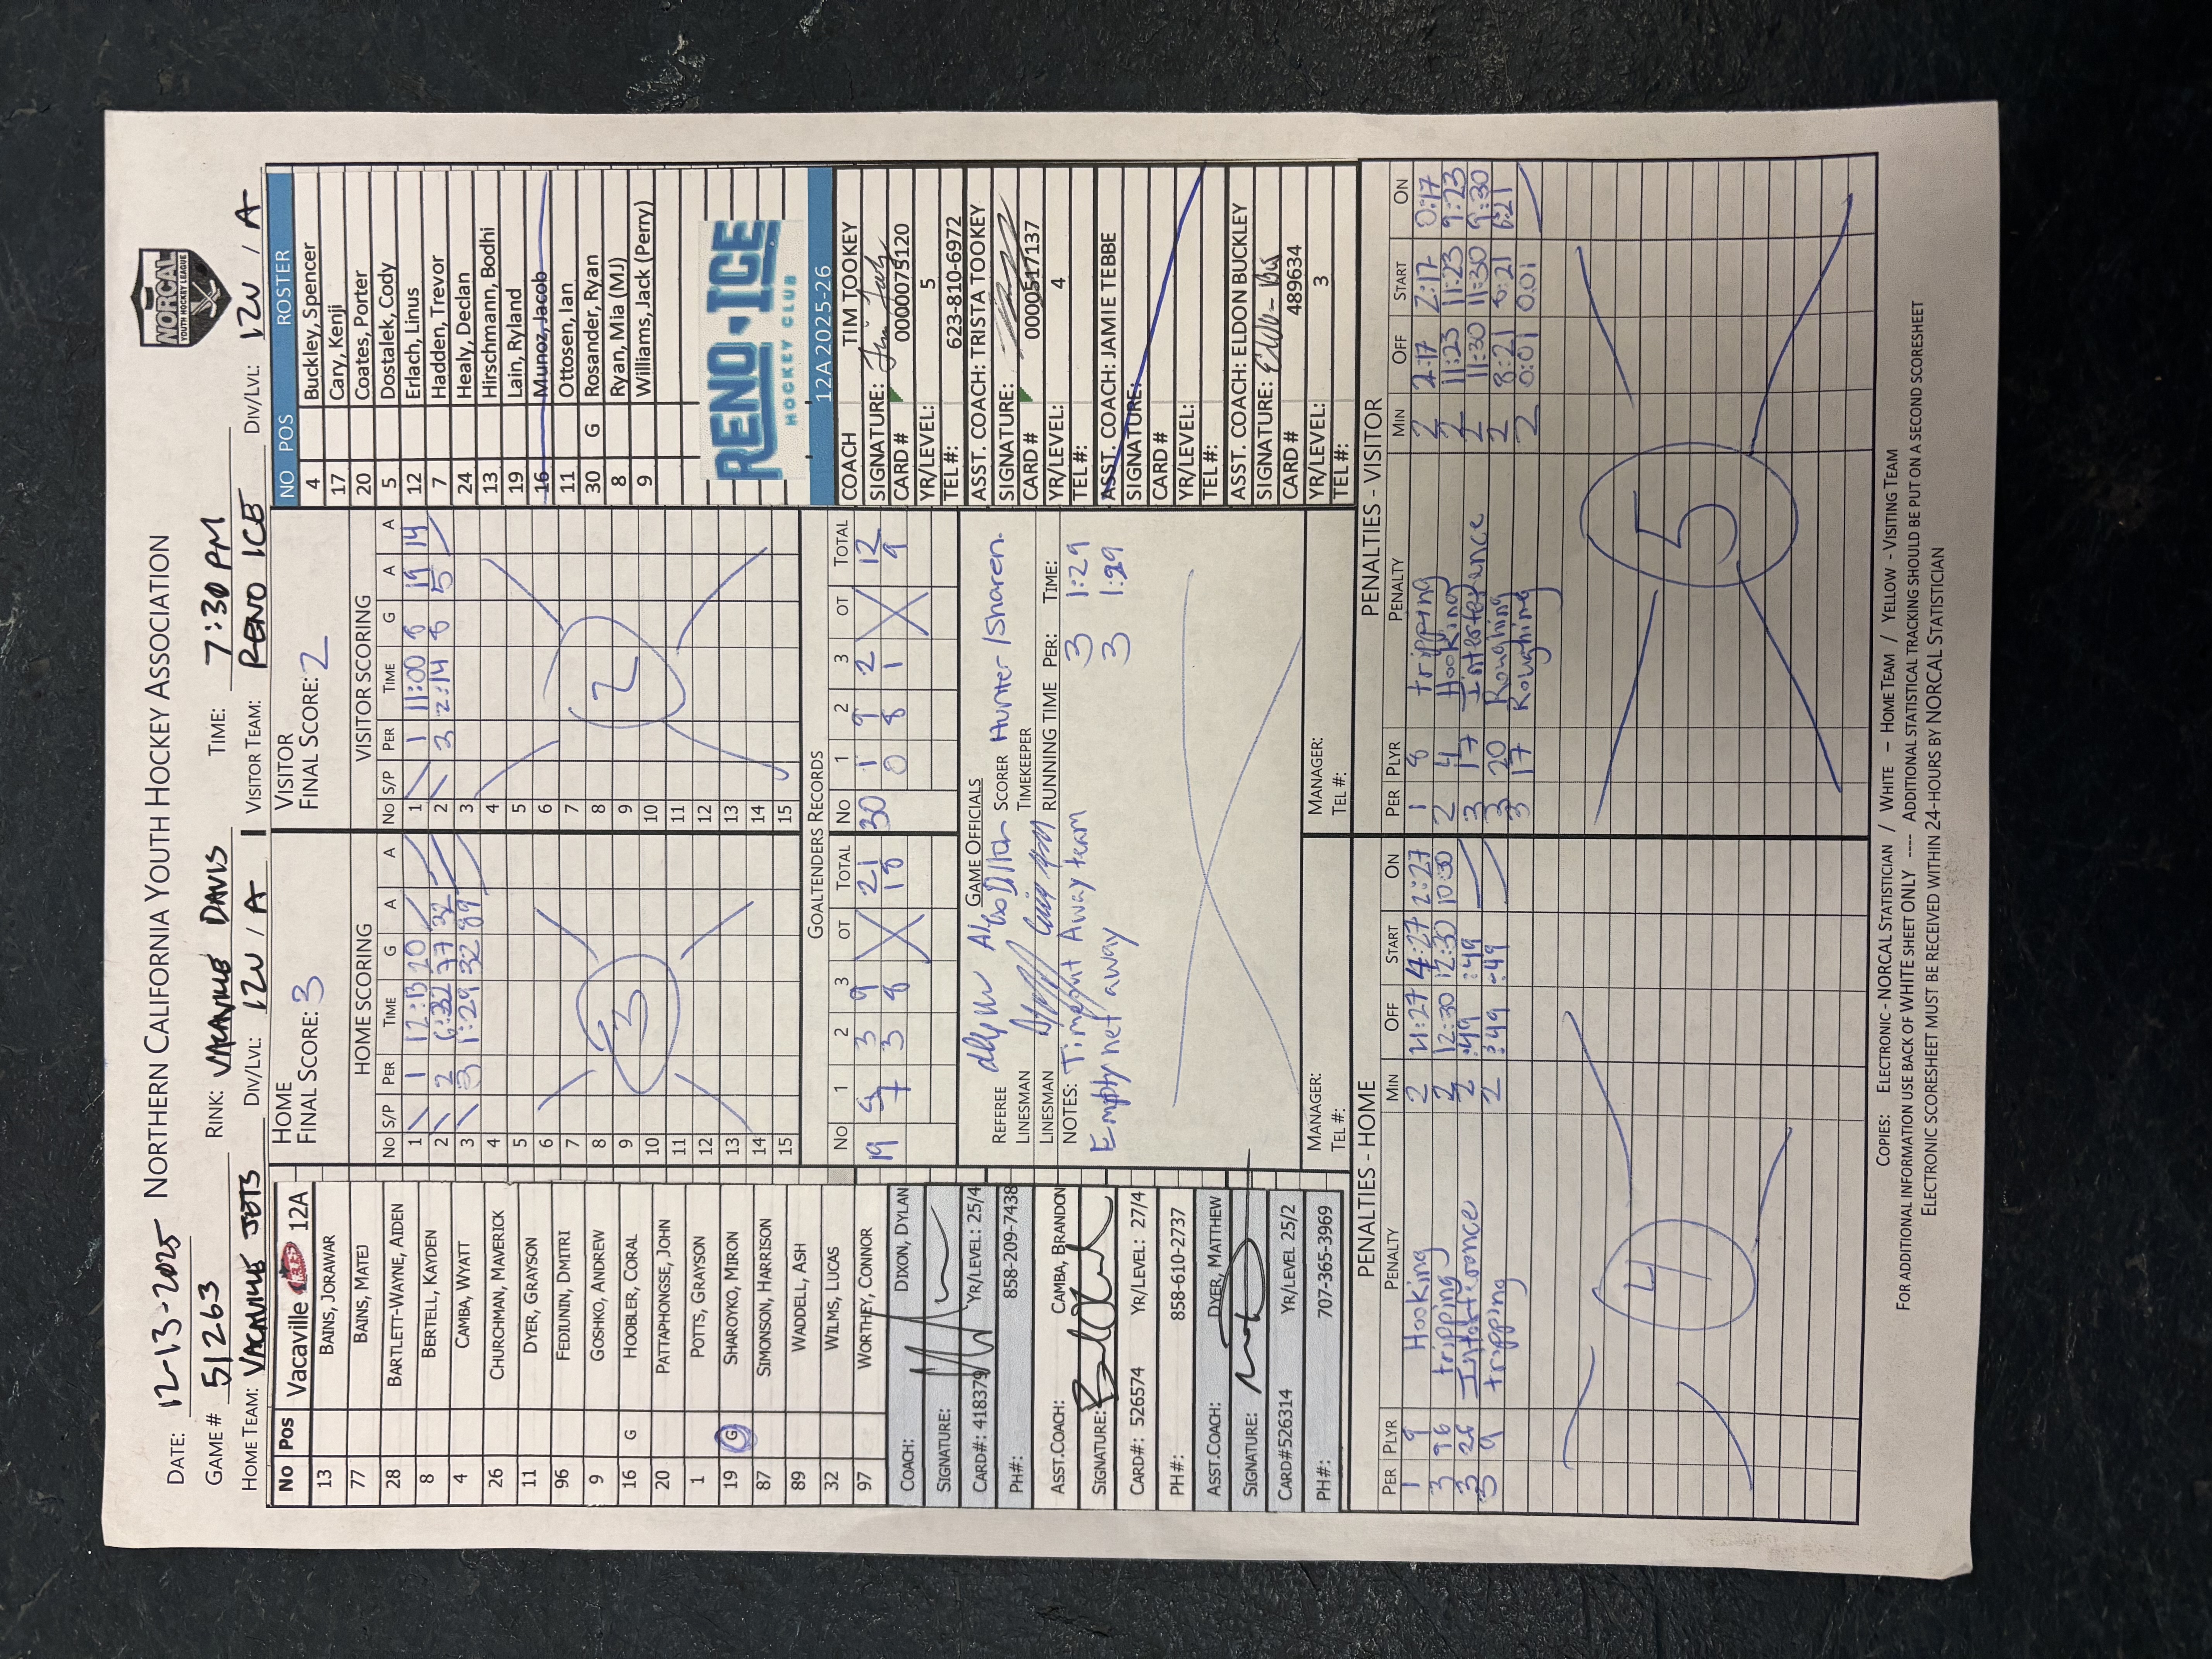 DATE: 12-13-2025 NORTHERN CALIFORNIA YOUTH HOCKEY ASSOCIATION
NORCAL
YOUTH HOCKEY LEAGUE
GAME # 51263 RINK: VACAVILLE DAVIS TIME: 7:30 PM
HOME TEAM: VACAVILLE JETS DIV/LVL: 12U / A VISITOR TEAM: RENO ICE DIV/LVL: 12U / A
No Pos Vacaville JETS 12A
13 BAINS, JORAWAR
77 BAINS, MATEJ
28 BARTLETT-WAYNE, AIDEN
8 BERTELL, KAYDEN
4 CAMBA, WYATT
26 CHURCHMAN, MAVERICK
11 DYER, GRAYSON
96 FEDIUNIN, DMITRI
9 GOSHKO, ANDREW
16 G HOOBLER, CORAL
20 PATTAPHONGSE, JOHN
1 POTTS, GRAYSON
19 G SHAROYKO, MIRON
87 SIMONSON, HARRISON
89 WADDELL, ASH
32 WILMS, LUCAS
97 WORTHEY, CONNOR
COACH: DIXON, DYLAN
SIGNATURE:
CARD#: 418379 YR/LEVEL: 25/4
PH#: 858-209-7438
ASST.COACH: CAMBA, BRANDON
SIGNATURE:
CARD#: 526574 YR/LEVEL: 27/4
PH#: 858-610-2737
ASST.COACH: DYER, MATTHEW
SIGNATURE:
CARD#526314 YR/LEVEL 25/2
PH#: 707-365-3969
HOME
FINAL SCORE: 3
HOME SCORING
NO S/P PER TIME G A A
1 1 12:13 20
2 2 6:32 77 32
3 3 1:29 32 89
4
5
6
7
8
9
10
11
12
13
14
15
3
VISITOR
FINAL SCORE: 2
VISITOR SCORING
NO S/P PER TIME G A A
1 1 11:00 8 19 14
2 3 2:14 8 5
3
4
5
6
7
8
9
10
11
12
13
14
15
2
GOALTENDERS RECORDS
NO 1 2 3 OT TOTAL NO 1 2 3 OT TOTAL
19 9 3 9 21 30 1 9 2 12
7 3 8 18 0 8 1 9
GAME OFFICIALS
REFEREE SCORER Hunter/Sharen
LINESMAN TIMEKEEPER
LINESMAN RUNNING TIME PER: TIME:
NOTES: Timeout Away team 3 1:29
Empty net away 3 1:29
MANAGER:
TEL #:
MANAGER:
TEL #:
NO POS ROSTER
4 Buckley, Spencer
17 Cary, Kenji
20 Coates, Porter
5 Dostalek, Cody
12 Erlach, Linus
7 Hadden, Trevor
24 Healy, Declan
13 Hirschmann, Bodhi
19 Lain, Ryland
16 Munoz, Jacob
11 Ottosen, Ian
30 G Rosander, Ryan
8 Ryan, Mia (MJ)
9 Williams, Jack (Perry)
RENO ICE
HOCKEY CLUB
12A 2025-26
COACH TIM TOOKEY
SIGNATURE:
CARD # 000007S120
YR/LEVEL: 5
TEL #: 623-810-6972
ASST. COACH: TRISTA TOOKEY
SIGNATURE:
CARD # 0000517137
YR/LEVEL: 4
TEL #:
ASST. COACH: JAMIE TEBBE
SIGNATURE:
CARD #
YR/LEVEL:
TEL #:
ASST. COACH: ELDON BUCKLEY
SIGNATURE:
CARD # 489634
YR/LEVEL: 3
TEL #:
PENALTIES - HOME
PER PLYR PENALTY MIN OFF START ON
1 9 Hooking 2 4:27 4:27 2:27
3 96 tripping 2 12:30 12:30 10:30
3 26 Interference 2 :49 :49
3 9 tripping 2 :49 :49
4
PENALTIES - VISITOR
PER PLYR PENALTY MIN OFF START ON
1 8 tripping 2 2:17 2:17 0:17
2 4 Hooking 2 11:23 11:23 9:23
3 17 Interference 2 11:30 11:30 9:30
3 20 Roughing 2 8:21 8:21 6:21
3 17 Roughing 2 0:01 0:01
5
COPIES: ELECTRONIC - NORCAL STATISTICIAN / WHITE – HOME TEAM / YELLOW - VISITING TEAM
FOR ADDITIONAL INFORMATION USE BACK OF WHITE SHEET ONLY ---- ADDITIONAL STATISTICAL TRACKING SHOULD BE PUT ON A SECOND SCORESHEET
ELECTRONIC SCORESHEET MUST BE RECEIVED WITHIN 24-HOURS BY NORCAL STATISTICIAN